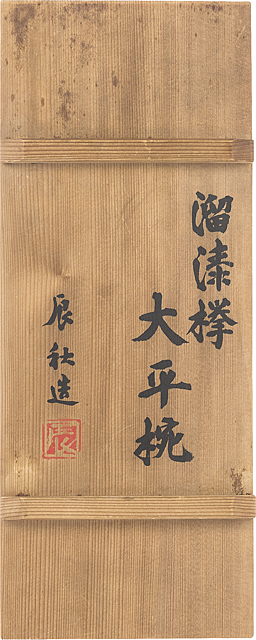 溜漆欅
大平椀
辰秋造
辰